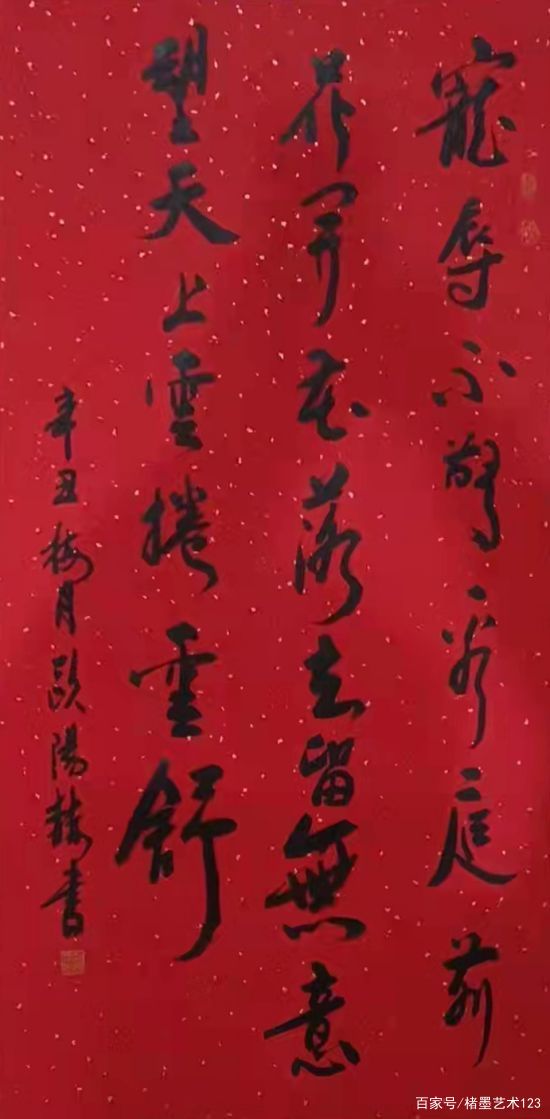 寵辱不驚看庭前
花開花落去留無意
望天上雲捲雲舒
辛丑梅月欧陽書
百家号/楮墨艺术123